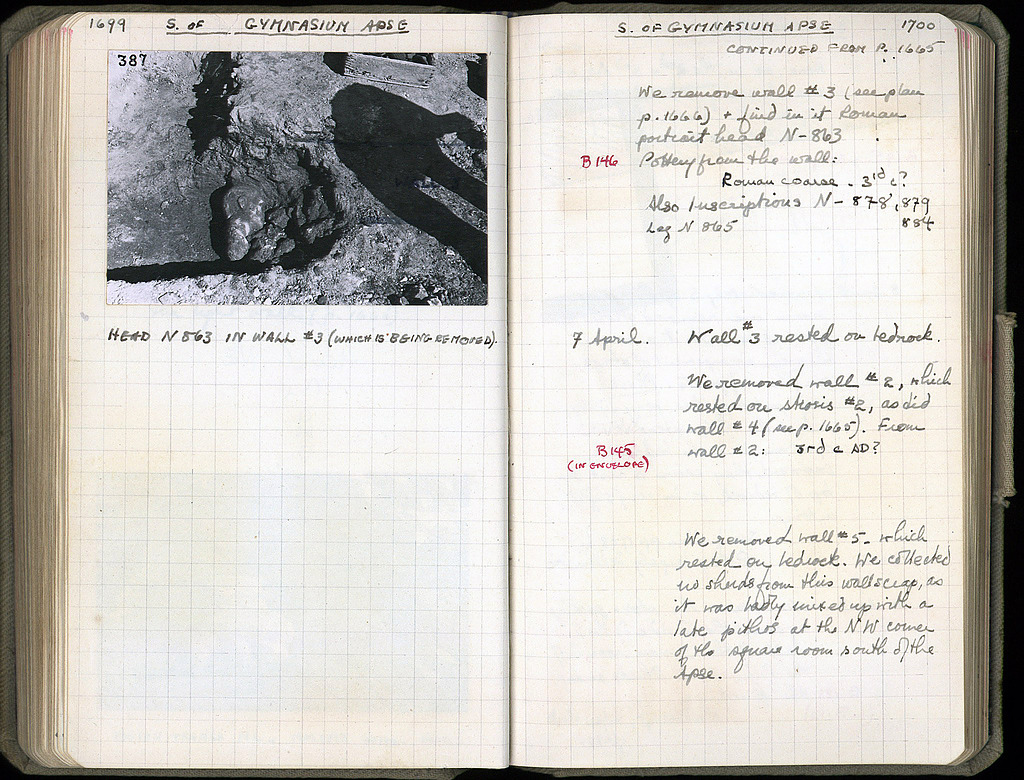 1699 S. OF GYMNASIUM APSE
387
HEAD N 863 IN WALL #3 (WHICH IS BEING REMOVED).
S. OF GYMNASIUM APSE 1700
CONTINUED FROM P. 1665
We remove wall #3 (see plan
p. 1666) + find in it Roman
portrait head N-863
B146 Pottery from the wall:
Roman coarse - 3rd c?
Also Inscriptions N-878, 879
Leg N 865 884
7 April. Wall #3 rested on bedrock.
We removed wall #2, which
rested on strosis #2, as did
wall #4 (see p. 1665). From
B145 wall #2: 3rd c AD?
(IN ENVELOPE)
We removed wall #5 - which
rested on bedrock. We collected
no sherds from this wall scrap, as
it was badly mixed up with a
late pithos at the NW corner
of the square room south of the
Apse.